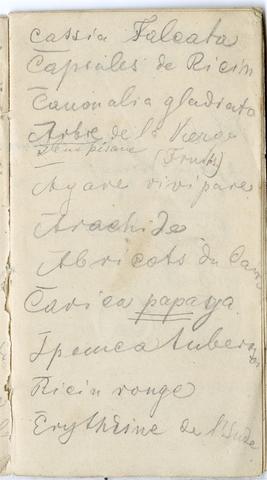 Cassia Falcata
Capsules de Ricin
Canonalia gladiata
Arbre de la Vierge
(Fruits)
Agave vivipare
Arachide
Abricots du
Carica papaya
Ipomea tubero
Ricin rouge
Erythrine de l'Inde